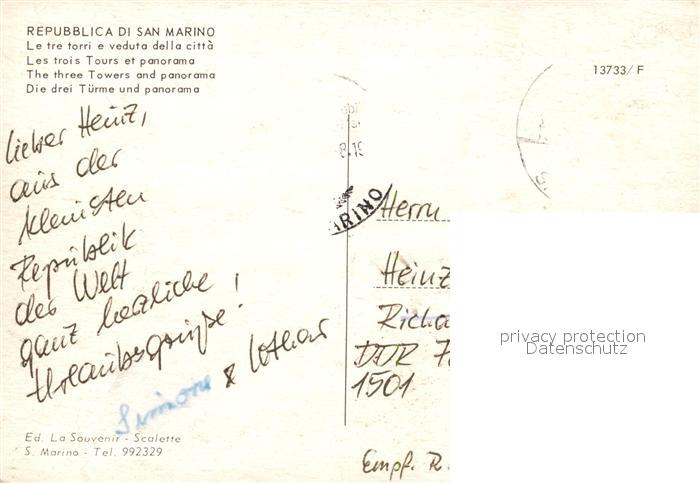 REPUBBLICA DI SAN MARINO
Le tre torri e veduta della città
Les trois Tours et panorama
The three Towers and panorama
Die drei Türme und panorama
13733/F
Lieber Heinz,
aus der
kleinsten
Republik
der Welt
ganz herzliche
Urlaubsgrüße!
Simone & Lothar
Ed. La Souvenir - Scalette
S. Marino - Tel. 992329
ARINO
Herrn
Heinz
Richa
DDR 7
1501
Empf. R.
privacy protection
Datenschutz